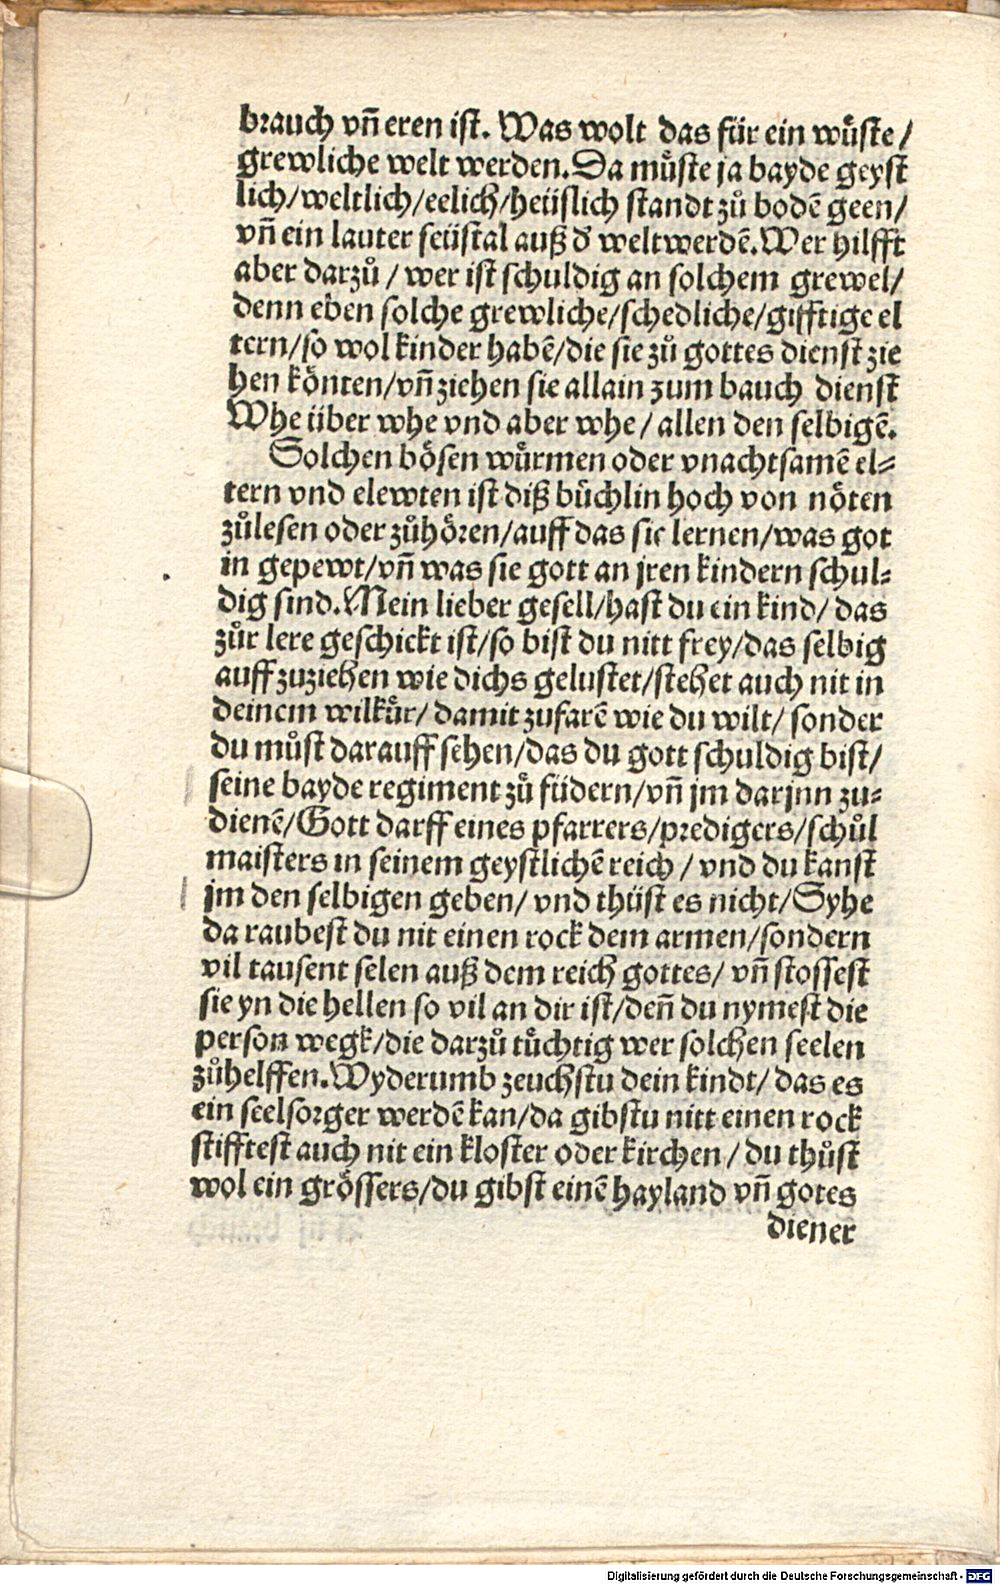 brauch vñ eren ist. Was wolt das für ein wuͤste /
grewliche welt werden. Da muͤste ja bayde geyst
lich/weltlich/eelich/heüslich standt zuͦ bodē geen/
vñ ein lauter seüstal auß ď welt werdē. Wer hilfft
aber darzuͦ / wer ist schuldig an solchem grewel/
denn eben solche grewliche/schedliche/gifftige el
tern/so wol kinder habē/die sie zuͦ gottes dienst zie
hen koͤnten/vñ ziehen sie allain zum bauch dienst
Whe über whe vnd aber whe / allen den selbigē.
Solchen boͤsen wuͤrmen oder vnachtsamē el⸗
tern vnd elewten ist diß buͤchlin hoch von noͤten
zuͦlesen oder zuͦhoͤren/auff das sie lernen/was got
in gepewt/vñ was sie gott an jren kindern schul⸗
dig sind. Mein lieber gesell/hast du ein kind/ das
zuͦr lere geschickt ist/so bist du nitt frey/das selbig
auff zuziehen wie dichs gelustet/stehet auch nit in
deinem wilkuͤr/ damit zufarē wie du wilt/ sonder
du muͦst darauff sehen/das du gott schuldig bist/
seine bayde regiment zuͦ füdern/vñ jm darjnn zu⸗
dienē/Gott darff eines pfarrers/predigers/schuͦl
maisters in seinem geystlichē reich / vnd du kanst
jm den selbigen geben/ vnd thüst es nicht/Syhe
da raubest du nit einen rock dem armen/sondern
vil tausent selen auß dem reich gottes/ vñ stossest
sie yn die hellen so vil an dir ist/deñ du nymest die
person wegk/die darzuͦ tuͤchtig wer solchen seelen
zuͦhelffen. Wyderumb zeuchstu dein kindt/ das es
ein seelsorger werdē kan/da gibstu nitt einen rock
stifftest auch nit ein kloster oder kirchen / du thuͦst
wol ein groͤssers/du gibst einē hayland vñ gotes
diener
Digitalisierung gefördert durch die Deutsche Forschungsgemeinschaft - DFG